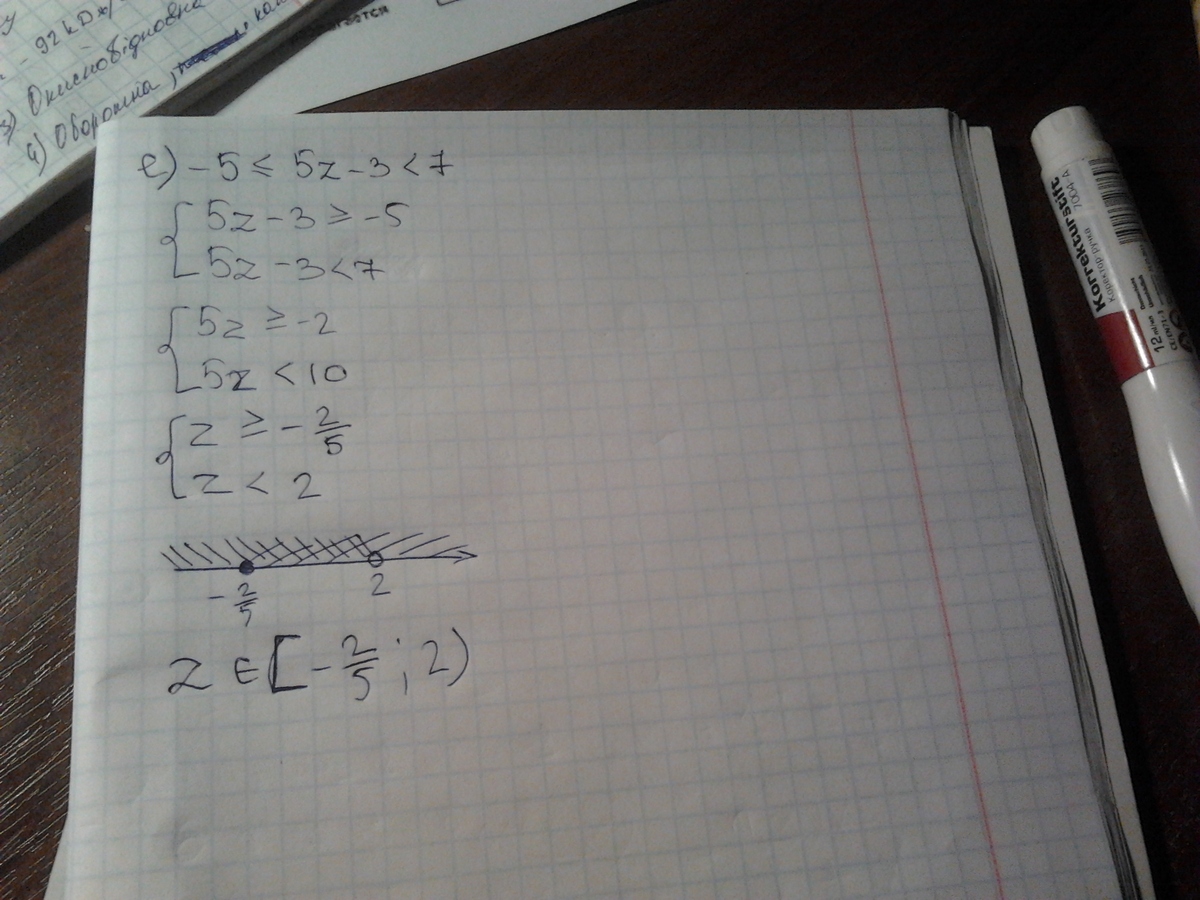 - 92 кДж/
Окисновідновна
4) Оборотна,
е) -5 ≤ 5z - 3 < 7
{ 5z - 3 ≥ -5
5z - 3 < 7
{ 5z ≥ -2
5z < 10
{ z ≥ - 2/5
z < 2
- 2/5 2
z ∈ [ - 2/5 ; 2)
Korrekturstift
Коректор-ручка 7004-A
12 ml